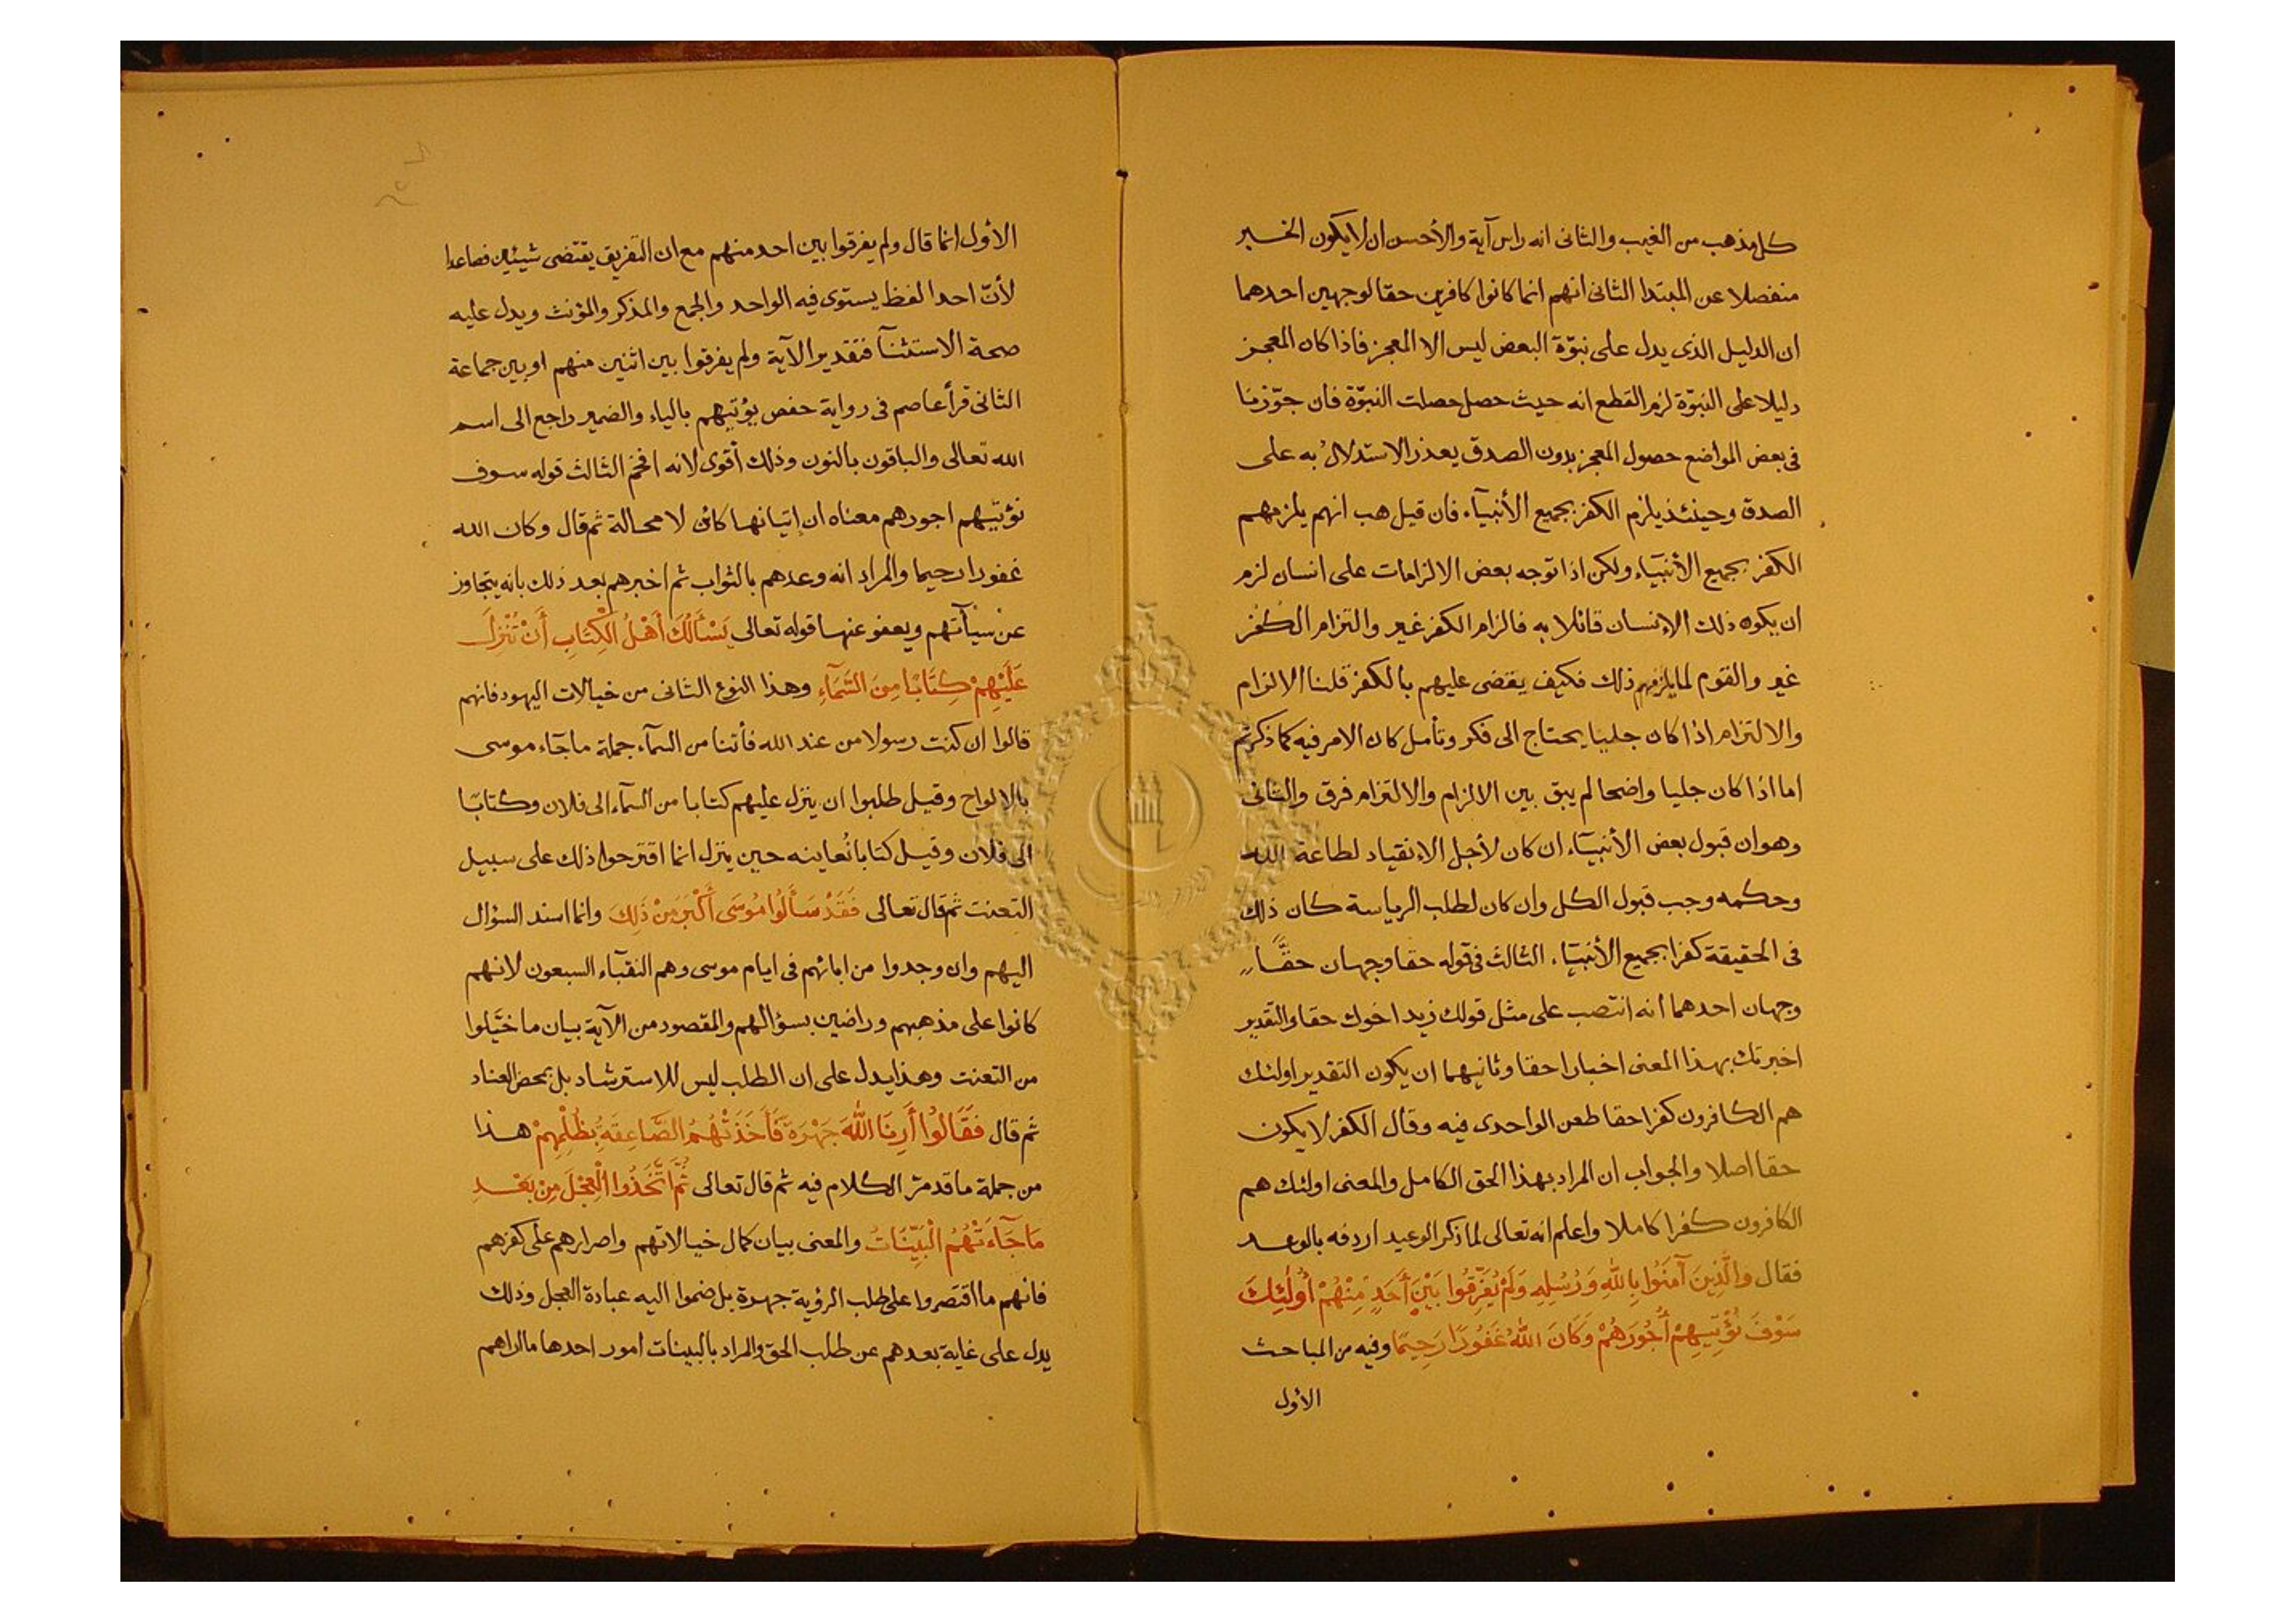 كل مذهب من الغيب والثانى انه راس آية والأحسن ان لا يكون الخبر
منفصلا عن المبتدا الثانى انهم انما كانوا كافرين حقا لوجهين احدهما
ان الدليل الذى يدل على نبوّة البعض ليس الا المعجز فاذا كان المعجز
دليلا على النبوّة لزم القطع انه حيث حصل حصلت النبوّة فان جوّزنا
فى بعض المواضع حصول المعجز بدون الصدق يعذر الاستدلال به على
الصدق وحينئذ يلزم الكفر بجميع الأنبيآء فان قيل هب انهم يلزمهم
الكفر بجميع الأنبيآء ولكن اذا توجه بعض الالزامات على انسان لزم
ان يكون ذلك الإنسان قائلا به فالزام الكفر غير والتزام الكفر
غير والقوم لما يلزمهم ذلك فكيف يقضى عليهم بالكفر قلنا الالزام
والالتزام اذا كان جليا يحتاج الى فكر وتأمل كان الامر فيه كما ذكرتم
اما اذا كان جليا واضحا لم يبق بين الالزام والالتزام فرق والثانى
وهو ان قبول بعض الأنبيآء ان كان لأجل الانقياد لطاعة الله
وحكمه وجب قبول الكل وان كان لطلب الرياسة كان ذلك
فى الحقيقة كفرا بجميع الأنبيآء الثالث فى قوله حقا وجهان حقًّا
وجهان احدهما انه انتصب على مثل قولك زيد اخوك حقا والتقدير
اخبرتك بهذا المعنى اخبارا حقا وثانيهما ان يكون التقدير اولئك
هم الكافرون كفرا حقا طعن الواحدى فيه وقال الكفر لا يكون
حقا اصلا والجواب ان المراد بهذا الحق الكامل والمعنى اولئك هم
الكافرون كفرا كاملا واعلم انه تعالى لما ذكر الوعيد اردفه بالوعد
فقال والَّذِينَ آمَنُوا بِاللهِ وَرُسُلِهِ وَلَمْ يُفَرِّقُوا بَيْنَ أَحَدٍ مِنْهُمْ أُولَٰئِكَ
سَوْفَ نُؤْتِيهِمْ أُجُورَهُمْ وَكَانَ اللهُ غَفُورًا رَحِيمًا وفيه من المباحث
الأول
الأول انما قال ولم يفرقوا بين احد منهم مع ان التفريق يقتضى شيئين فصاعدا
لأنّ احدا لفظ يستوى فيه الواحد والجمع والمذكر والمؤنث ويدل عليه
صحة الاستثنآ فتقدير الآية ولم يفرقوا بين اثنين منهم او بين جماعة
الثانى قرأ عاصم فى رواية حفص يؤتيهم بالياء والضمير راجع الى اسم
الله تعالى والباقون بالنون وذلك أقوى لانه افخم الثالث قوله سوف
نؤتيهم اجورهم معناه ان إتيانها كائن لا محالة ثم قال وكان الله
غفورا رحيما والمراد انه وعدهم بالثواب ثم اخبرهم بعد ذلك بانه يتجاوز
عن سيأتهم ويعفو عنها قوله تعالى يَسْأَلُكَ أَهْلُ الْكِتَابِ أَنْ تُنَزِلَ
عَلَيْهِمْ كِتَابًا مِنَ السَّمَآءِ وهذا النوع الثانى من خيالات اليهود فانهم
قالوا ان كنت رسولا من عند الله فأتنا من السمآء جملة ما جآء موسى
بالالواح وقيل طلبوا ان ينزل عليهم كتابا من السمآء الى فلان وكتابًا
الى فلان وقيل كتابا نُعاينه حين ينزل انما اقترحوا ذلك على سبيل
التعنت ثم قال تعالى فَقَدْ سَأَلُوا مُوسَى أَكْبَرَ مِنْ ذَلِكَ وانما اسند السؤال
اليهم وان وجدوا من ابائهم فى ايام موسى وهم النقبآء السبعون لانهم
كانوا على مذهبهم وراضين بسؤالهم والمقصود من الآية بيان ما خيّلوا
من التعنت وهذا يدل على ان الطلب ليس للاسترشاد بل بمحض العناد
ثم قال فَقَالُوا أَرِنَا اللهَ جَهْرَةً فَأَخَذَتْهُمُ الصَّاعِقَةُ بِظُلْمِهِمْ هذا
من جملة ما قد مرّ الكلام فيه ثم قال تعالى ثُمَّ اتَّخَذُوا الْعِجْلَ مِنْ بَعْدِ
مَا جَآءَتْهُمُ الْبَيِّنَاتُ والمعنى بيان كمال خيالاتهم واصرارهم على كفرهم
فانهم ما اقتصروا على طلب الرؤية جهرة بل ضموا اليه عبادة العجل وذلك
يدل على غاية بعدهم عن طلب الحق والمراد بالبينات امور احدها ما اراهم